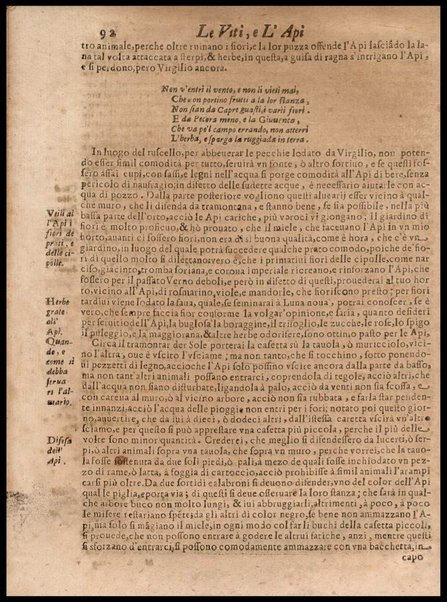 92 Le Viti, e L' Api
tro animale, perche oltre ruinano i fiori, e la lor puzza offende l'Api lasciãdo la la-
na tal volta attaccata a sterpi, & herbe, in questa, a guisa di ragna s'intrigano l'Api,
e si perdono, però Virgilio ancora.
Non v'entri il vento, e non li vieti mai,
Che non portino frutti a la lor stanza,
Non sian da Capre guasti, e varij fiori.
E da Pecora meno, e la Giuuenta,
Che va pe'l campo errando, non atterri
L'herba, e sparga la ruggiada in terra.
In luogo del ruscello, per abbeuerar le pecchie lodato da Virgilio, non poten-
do esser simil comodità per tutto, seruirà vn fonte, ò altro fortiuo, e se questi fos-
sero assai cupi, con sassi, e legni nell'acqua si porge comodità all'Api di bere, senza
pericolo di naufragio, in difetto delle sudette acque, è necessario aiutarle con ac-
qua di pozzo. Dalla parte posteriore vogliono questi aluearij esser vicino à qual-
che muro, che li difenda da tramontana, e stanno bene, se sia possibile, nella più
bassa parte dell'orto, acciò le Api cariche, più veroci vi giongano. Il giardino di
fiori è molto proficuo, & hò prouato, che il miele, che faceuano l'Api in vn mio
horto, auanti ci fossero fiori, non era di sì buona qualità, come è hora, che c'è vn
giardino, in luogo del quale potrà succedere qualche prato comodo, poiche de' fio-
ri, che in quello molto si dilettano vero è, che i primatiui fiori delle cipolle, come nar
ciso, giacinto, tromba soriana, e corona imperiale ricreano, e rinforzano l'Api, che
fossero per il passato Verno deboli, e però in difetto di questi, procederai al tuo hor
to, vicino all'Api, di rosmarino, viole, e mandorle, che fioriscono presto; per fiori
tardiui viene lodato la saua, quale, se seminarai à Luna noua, potrai conoscer, se è
vero, che sempre faccia fior conforme la volgar'opinione, e saria, quando desideri
per seruitio dell'Api, la buglosa, la boraggine, il trifoglio, le zucche, le rose, lo spigo
il puleggio, e la maggiorana, & altre herbe odorifere, sono ottino, pasto per le Api.
Circa il tramontar del Sole porterai la casetta sù la tauola, ò muricciolo, vici-
no l'altra, oue è vscito l'vsciame; ma non tanto, che si tocchino, sotto ponendo-
ui pezzetti di legno, acciòche l'Api solo possino vscire ancora dalla parte da basso,
ma non tant'altri animali possano entrarci, coprendola di tegole, acciò altri, che
dall'acqua non siano disturbate, ligandola à palo, acciò da venti non sia scossa, e
con catena al muro, ò al vicino arbore, acciò non sia rubbata, e farla star penden-
te innanzi, acciò l'acqua delle pioggie non entri per i fori; notato poi quello gior-
no, auuertire, che da iui à dieci, ò dodeci altri, dall'istessa caretta vsirà vn'altro
sciamo, e per questo si può appressare vna casetta più piccola, perche il più delle
volte sono minor quantità. Crederei, che meglio si difendessero da lucerti, ò ser-
pi, ò altri animali sopra vna tauola, che sopra vn muro, perche vorrei, che la tauo-
la fosse sostenuta da due soli piedi, ò pali, à mezo de quali fosse inchiodato vn pez-
zo di rame, ò latta, à foggia di cartoccio, acciò prohibisse à simili animali l'arampi
carsi più oltre. Da due sortidi calabroni si deuono difender, vno del color dell'Api
qual le piglia, e porta via; di questi si deue osseruare la loro stanza; che sarà in qual-
che arbore buco non molto lungi, & iui abbruggiarli, altrimenti, à poco, à poco
le misere restariano spente; da gli altri di color negro, se bene non ammazzano l'A
pi, ma solo si mãgiano il miele, in ogni modo col far li buchi della casetta piccoli,
si prouede, che non possano entrare à godere le altrui fatiche, anzi, mentre questi
si sforzano d'entrarci, si possono comodamente ammazzare con vna bacchetta, in
capo
Vtili al
l'Api i
fiori de
prati, e
delle ci-
polle.
Herbe
grate
all'
Api.
Quan-
do, e
come si
debba
serua
ri l'al-
ueario.
Difesa
dell'
Api.